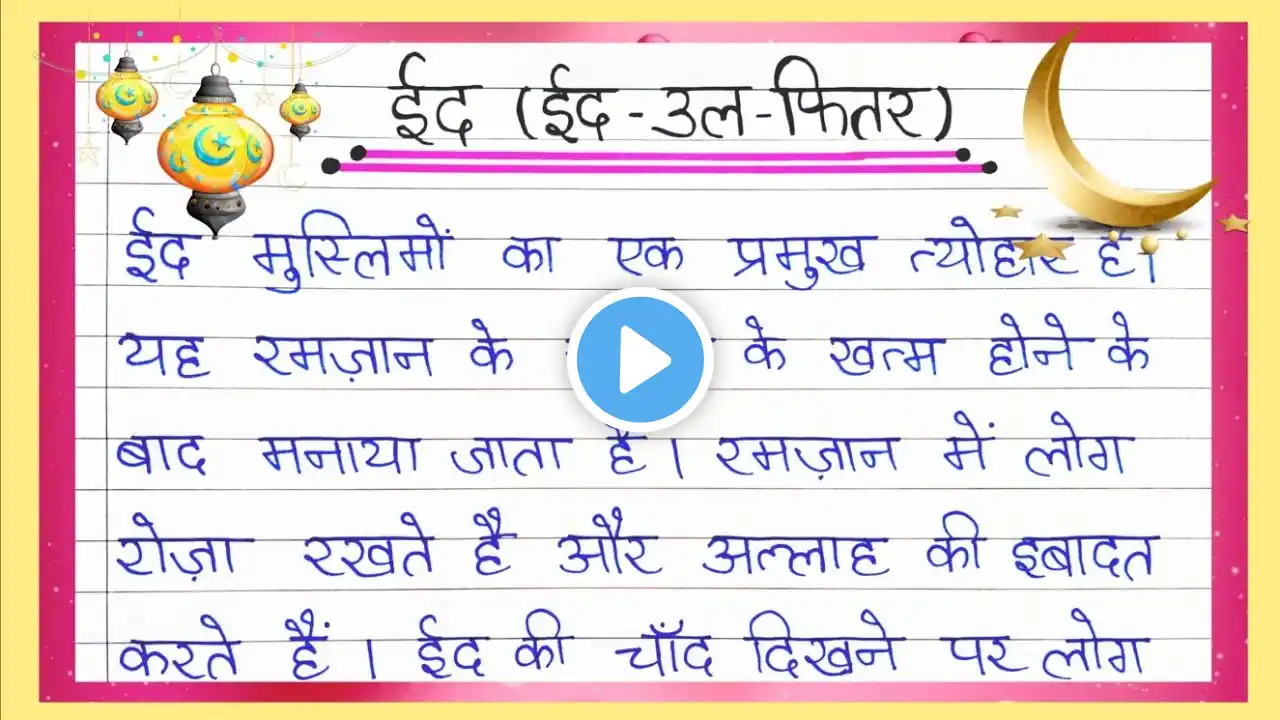 ईद (ईद-उल-फितर)
ईद मुस्लिमों का एक प्रमुख त्योहार है।
यह रमज़ान के के खत्म होने के
बाद मनाया जाता है। रमज़ान में लोग
रोज़ा रखते है और अल्लाह की इबादत
करते हैं। ईद की चाँद दिखने पर लोग